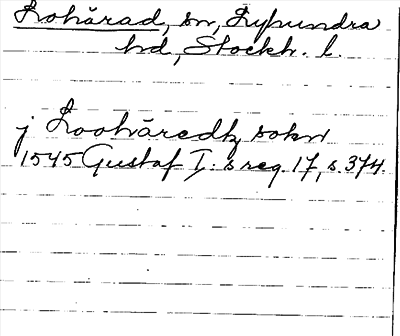 Lohärad, sn, Lyhundra
hd, Stockh. l.
j Loohäredtz sokn
1545 Gustaf I: s reg. 17, s. 374.